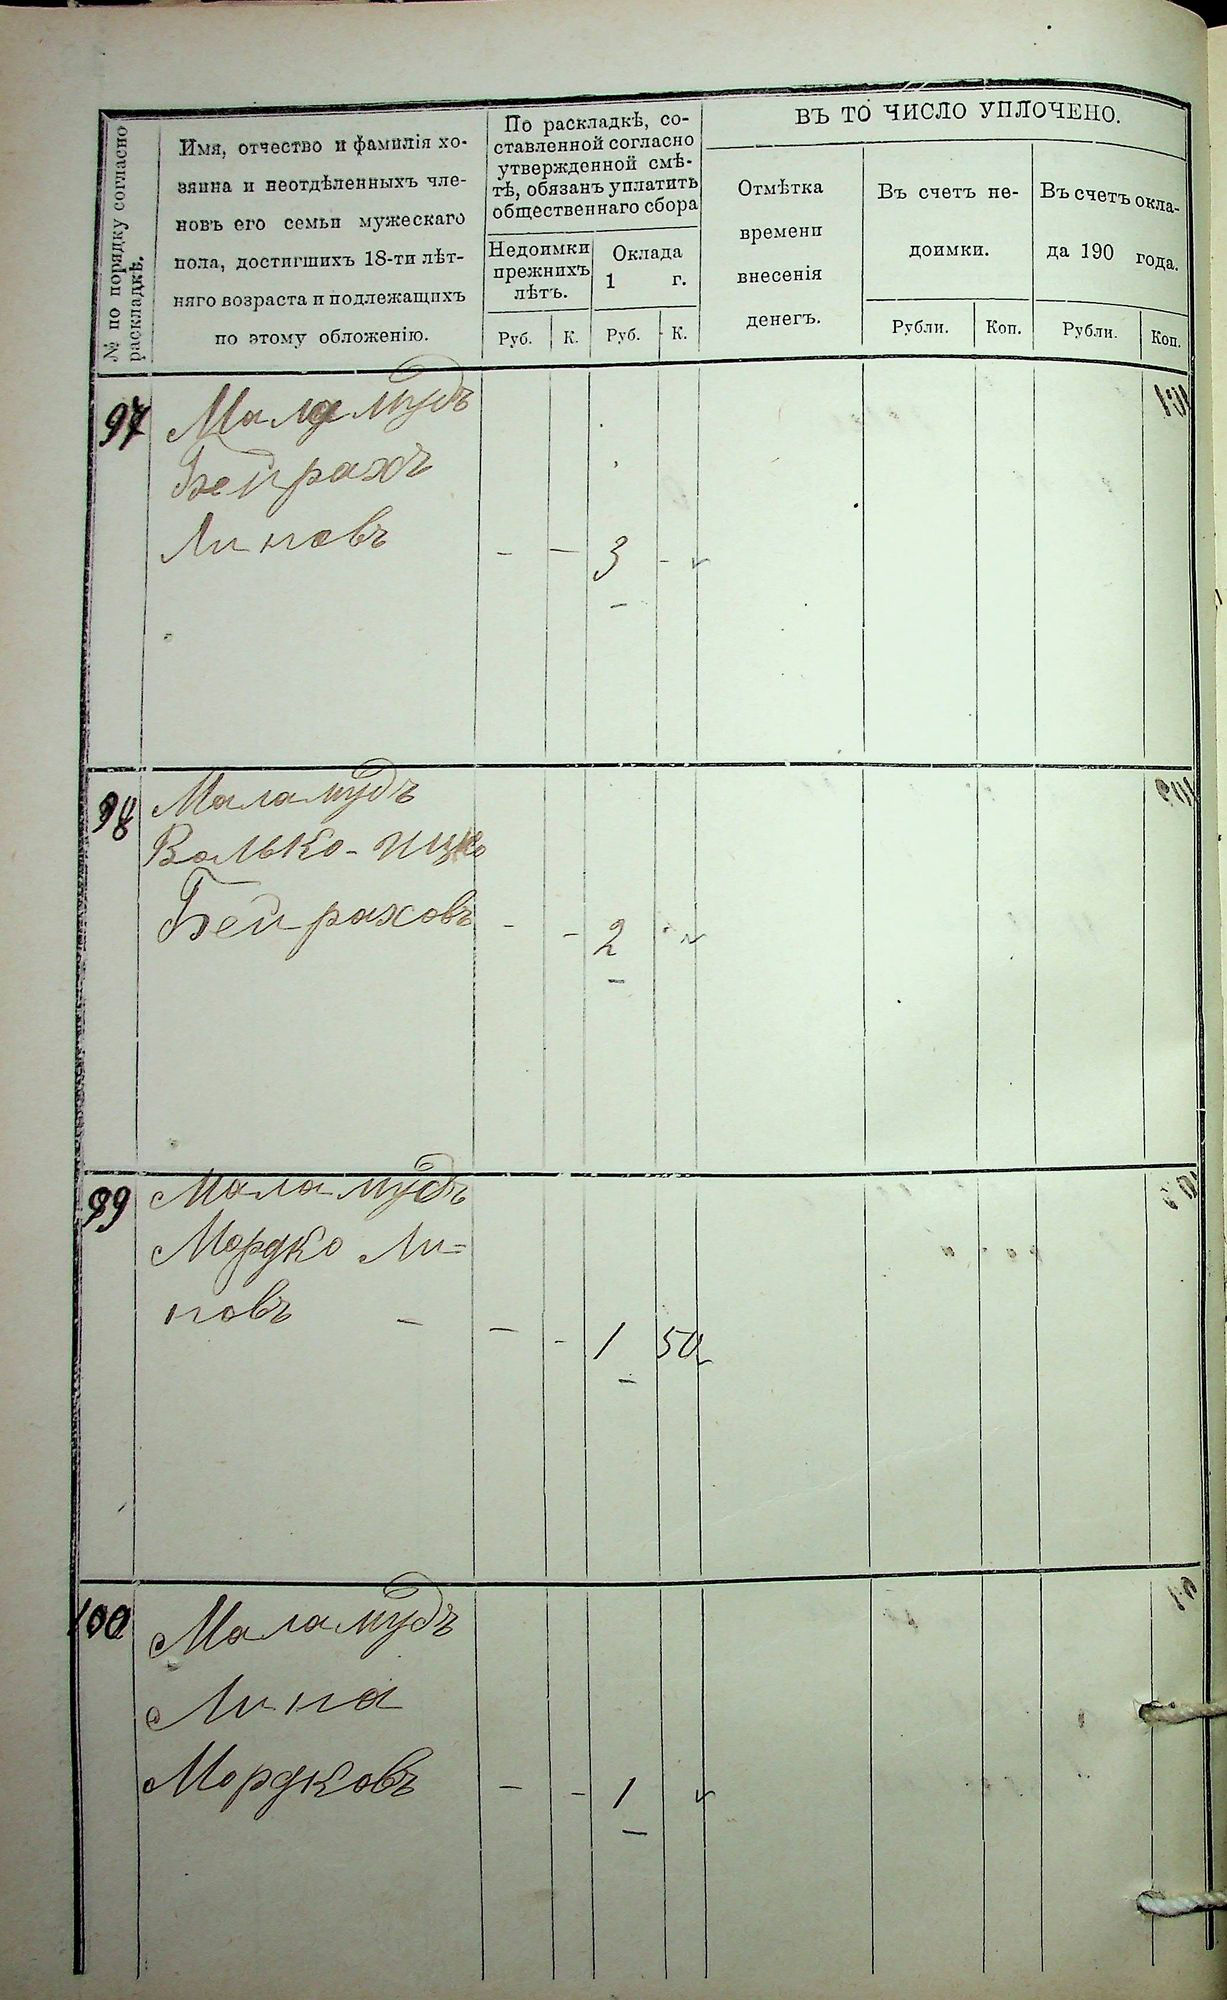 № по порядку согласно
раскладкѣ.
Имя, отчество и фамилія хо-
зяина и неотдѣленныхъ чле-
новъ его семьи мужескаго
пола, достигшихъ 18-ти лѣт-
няго возраста и подлежащихъ
по этому обложенію.
По раскладкѣ, со-
ставленной согласно
утвержденной смѣ-
тѣ, обязанъ уплатить
общественнаго сбора
Недоимки
прежнихъ
лѣтъ.
Оклада
1 г.
Руб. К. Руб. К.
ВЪ ТО ЧИСЛО УПЛОЧЕНО.
Отмѣтка
времени
внесенія
денегъ.
Въ счетъ не-
доимки.
Въ счетъ окла-
да 190 года.
Рубли. Коп. Рубли. Коп.
97 Маламудъ
Бейрахъ
Линовъ - - 3 -
98 Маламудъ
Волько-Ицко
Бейраховъ - - 2
99 Маламудъ
Мордко Ли=
новъ - - - 1 50
100 Маламудъ
Лина
Мордковъ - - 1